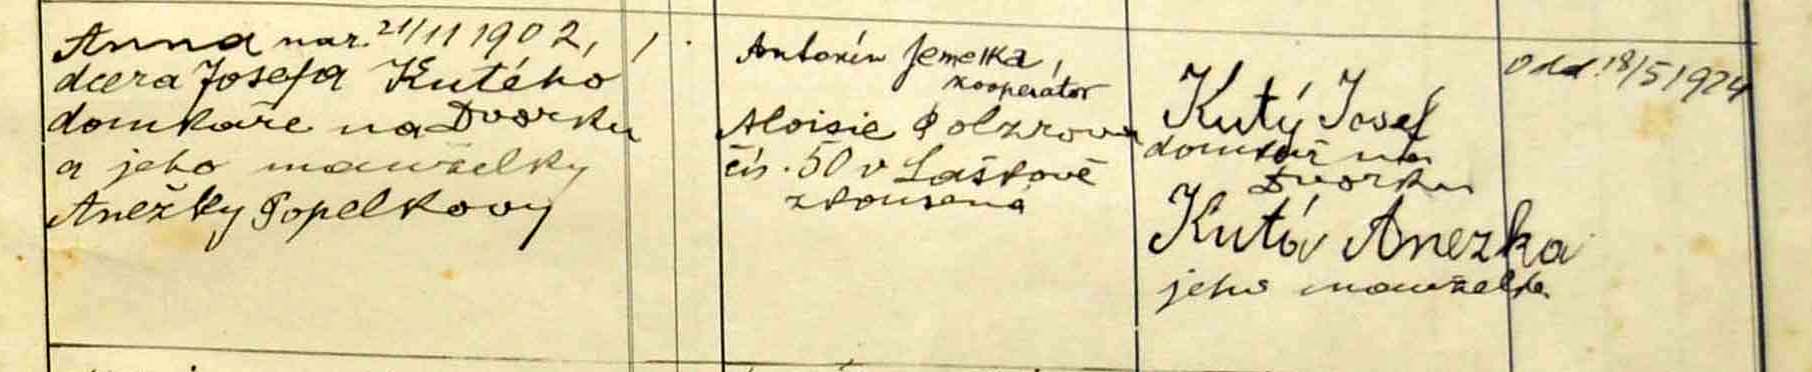 Anna nar. 21/11 1902, 1.
dcera Josefa Kutého
domkaře na Dvorku
a jeho manželky
Anežky Popelkovy
Antonín Jemelka,
kooperátor
Aloisie Polzrova
čís. 50 v Laškově
zkoušená
Kutý Josef
domkař na
Dvorku
Kutá Anezka
jeho manželka
Odd. 18/5 1924